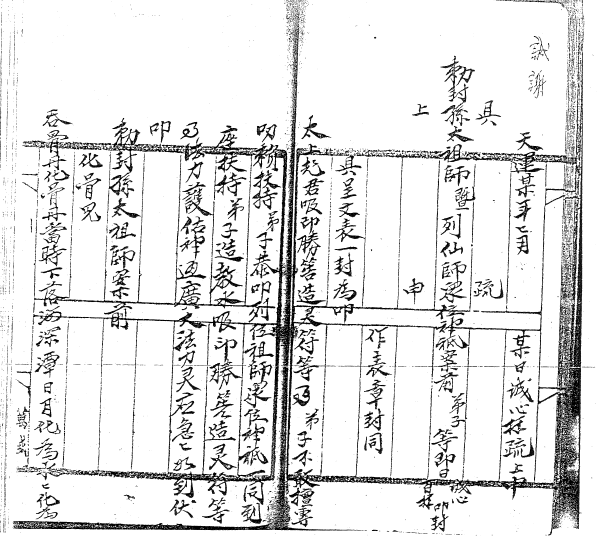 誠謝
天運某年七月　某日誠心拜疏上申
具　疏
上　申
勅封孫太祖師暨列仙師衆位神祇案前　弟子等即日誠心百拜叩封
作表章封同
具呈文表一封為叩
太上老君吸印勝筶造灵符等　弟子不敢擅專
叨賴扶持弟子恭叩列位祖師衆位神祇一同到
座扶持弟子造教水吸印勝筶造灵符等
法力護佑神通廣大法力灵应急急到伏
叩
勅封孫太祖師案前
化骨咒
吞骨丹化骨丹當時下落深潭日月化為水化為